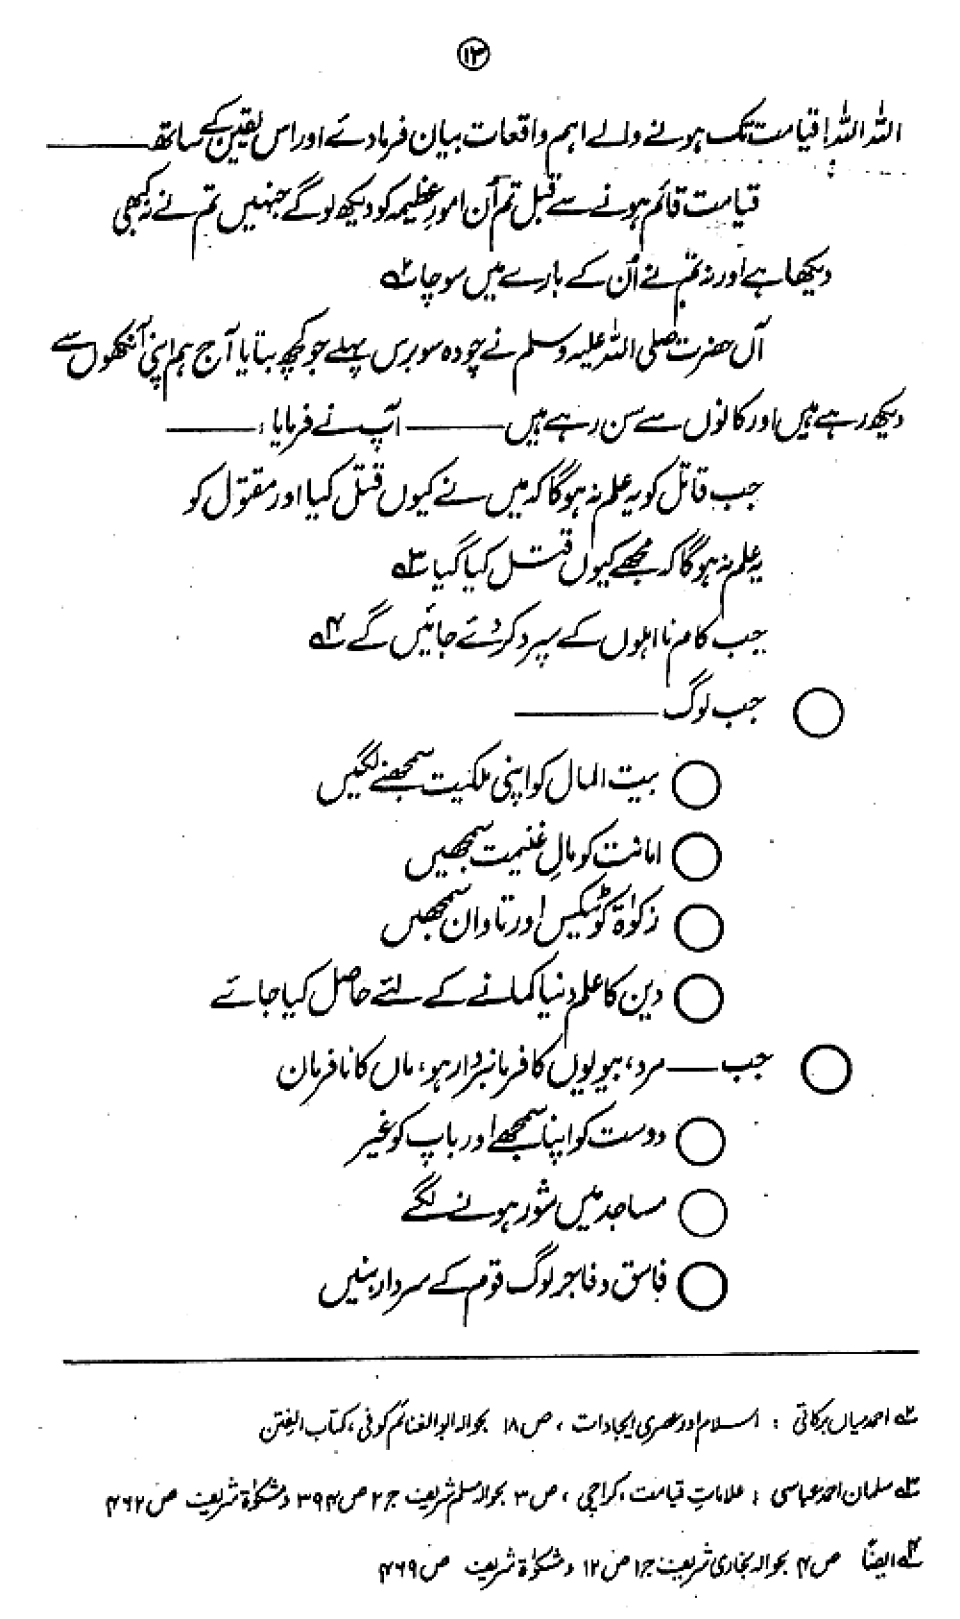 ۱۳
اللہ اللہ! قیامت تک ہونے والے اہم واقعات بیان فرمادئے اور اس یقین کے ساتھ ———
قیامت قائم ہونے سے قبل تم اُن امورِ عظیمہ کو دیکھ لو گے جنہیں تم نے نہ کبھی
دیکھا ہے اور نہ تم نے اُن کے بارے میں سوچا ۲؎
آں حضرت صلی اللہ علیہ وسلم نے چودہ سو برس پہلے جو کچھ بتایا آج ہم اپنی آنکھوں سے
دیکھ رہے ہیں اور کانوں سے سن رہے ہیں ——— آپ نے فرمایا : ———
جب قاتل کو یہ علم نہ ہوگا کہ میں نے کیوں قتل کیا اور مقتول کو
یہ علم نہ ہوگا کہ مجھے کیوں قتل کیا گیا ۳؎
جب کام نااہلوں کے سپرد کر دئے جائیں گے ۴؎
○ جب لوگ ———
○ بیت المال کو اپنی ملکیت سمجھنے لگیں
○ امانت کو مالِ غنیمت سمجھیں
○ زکوٰۃ کو ٹیکس اور تاوان سمجھیں
○ دین کا علم دنیا کمانے کے لئے حاصل کیا جائے
○ جب — مرد، بیویوں کا فرمانبردار ہو، ماں کا نافرمان
○ دوست کو اپنا سمجھے اور باپ کو غیر
○ مساجد میں شور ہونے لگے
○ فاسق و فاجر لوگ قوم کے سردار بنیں
۲؎ احمد میاں برکاتی : اسلام اور عصری ایجادات ، ص ۱۸ بحوالہ ابو الغنائم کوفی، کتاب الفتن
۳؎ سلمان احمد عباسی : علاماتِ قیامت، کراچی ، ص ۳ بحوالہ مسلم شریف ج ۲ ص ۳۹۴ و مشکوٰۃ شریف ص ۴۶۲
۴؎ ایضاً ص ۴ بحوالہ بخاری شریف ج ۱ ص ۱۲ و مشکوٰۃ شریف ص ۴۶۹